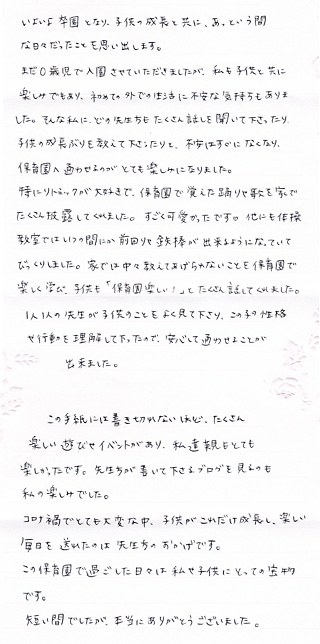 いよいよ卒園となり、子供の成長と共に、あっという間
な日々だったことを思い出します。
まだ0歳児で入園させていただきましたが、私も子供と共に
楽しみでもあり、初めての外での生活に不安な気持ちもありま
した。そんな私に、どの先生方もたくさん話しを聞いて下さったり、
子供の成長ぶりを教えて下さったりと、不安はすぐになくなり、
保育園へ通わせるのがとても楽しみになりました。
特にリトミックが大好きで、保育園で覚えた踊りや歌を家で
たくさん披露してくれました。すごく可愛かったです。他にも体操
教室ではいつの間にか前回りや鉄棒が出来るようになっていて
びっくりしました。家では中々教えてあげられないことを保育園で
楽しく学び、子供も「保育園楽しい!」とたくさん話してくれました。
1人1人の先生が子供のことをよく見て下さり、この子の性格
や行動を理解して下ったので、安心して通わせることが
出来ました。
この手紙には書き切れないほど、たくさん
楽しい遊びやイベントがあり、私達親もとても
楽しかったです。先生方が書いて下さるブログを見るのも
私の楽しみでした。
コロナ禍でとても大変な中、子供がこれだけ成長し、楽しい
毎日を送れたのは先生方のおかげです。
この保育園で過ごした日々は私や子供にとっての宝物
です。
短い間でしたが、本当にありがとうございました。